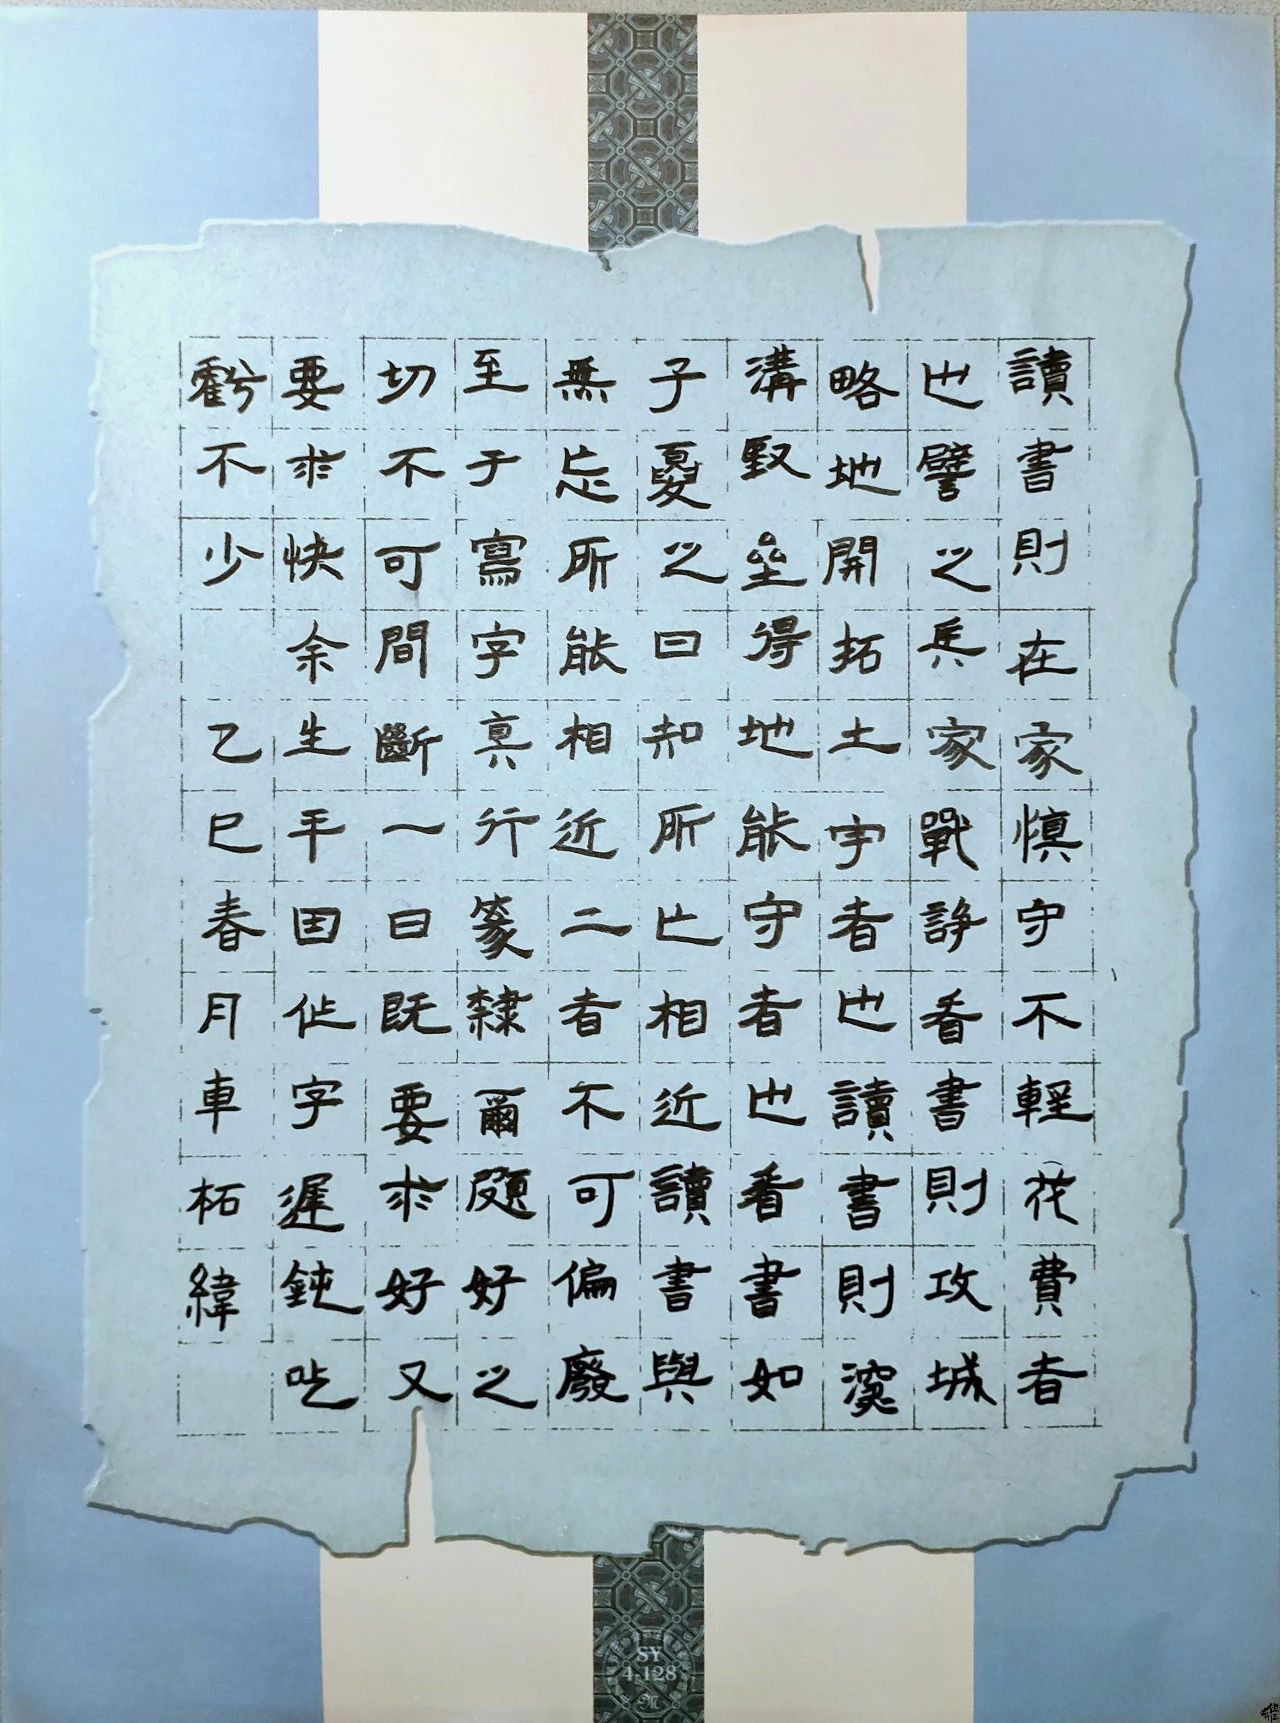 讀書則在家慎守不輕花費者
也譬之兵家戰諍看書則攻城
略地開拓土宇者也讀書則深
溝堅壘得地能守者也看書如
子夏之曰知所亡相近讀書與
無忘所能相近二者不可偏廢
至于寫字真行篆隸爾頗好之
切不可間斷一日既要求好又
要求快余生平因作字遲鈍吃
虧不少 乙巳春月車柘緯
SY
4-128